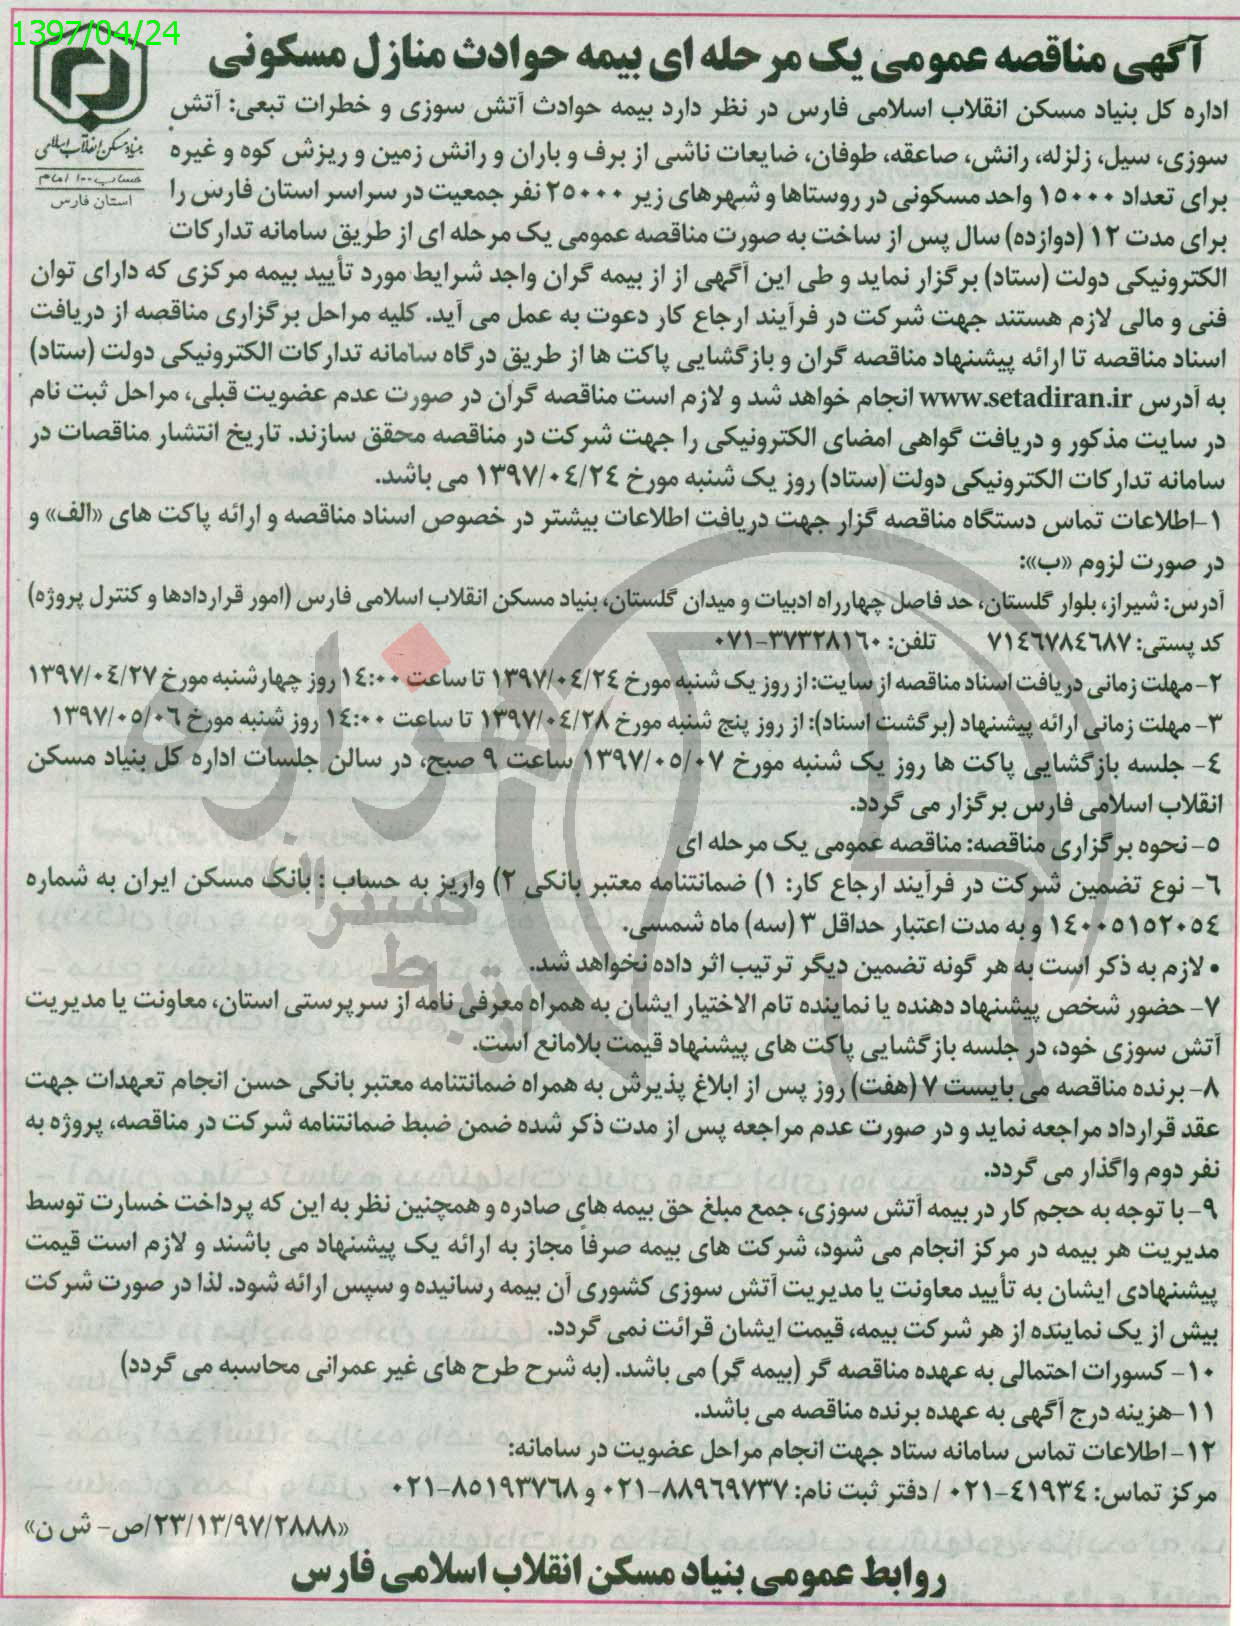 1397/04/24
آگهی مناقصه عمومی یک مرحله ای بیمه حوادث منازل مسکونی
بنیاد مسکن انقلاب اسلامی
حساب ۱۰۰ امام
استان فارس
اداره کل بنیاد مسکن انقلاب اسلامی فارس در نظر دارد بیمه حوادث آتش سوزی و خطرات تبعی: آتش
سوزی، سیل، زلزله، رانش، صاعقه، طوفان، ضایعات ناشی از برف و باران و رانش زمین و ریزش کوه و غیره
برای تعداد ۱۵۰۰۰ واحد مسکونی در روستاها و شهرهای زیر ۲۵۰۰۰ نفر جمعیت در سراسر استان فارس را
برای مدت ۱۲ (دوازده) سال پس از ساخت به صورت مناقصه عمومی یک مرحله ای از طریق سامانه تدارکات
الکترونیکی دولت (ستاد) برگزار نماید و طی این آگهی از از بیمه گران واجد شرایط مورد تأیید بیمه مرکزی که دارای توان
فنی و مالی لازم هستند جهت شرکت در فرآیند ارجاع کار دعوت به عمل می آید. کلیه مراحل برگزاری مناقصه از دریافت
اسناد مناقصه تا ارائه پیشنهاد مناقصه گران و بازگشایی پاکت ها از طریق درگاه سامانه تدارکات الکترونیکی دولت (ستاد)
به آدرس www.setadiran.ir انجام خواهد شد و لازم است مناقصه گران در صورت عدم عضویت قبلی، مراحل ثبت نام
در سایت مذکور و دریافت گواهی امضای الکترونیکی را جهت شرکت در مناقصه محقق سازند. تاریخ انتشار مناقصات در
سامانه تدارکات الکترونیکی دولت (ستاد) روز یک شنبه مورخ ۱۳۹۷/۰۴/۲۴ می باشد.
۱-اطلاعات تماس دستگاه مناقصه گزار جهت دریافت اطلاعات بیشتر در خصوص اسناد مناقصه و ارائه پاکت های «الف» و
در صورت لزوم «ب»:
آدرس: شیراز، بلوار گلستان، حد فاصل چهارراه ادبیات و میدان گلستان، بنیاد مسکن انقلاب اسلامی فارس (امور قراردادها و کنترل پروژه)
کد پستی: ۷۱۴۶۷۸۴۶۸۷ تلفن: ۳۷۳۲۸۱۶۰-۰۷۱
۲- مهلت زمانی دریافت اسناد مناقصه از سایت: از روز یک شنبه مورخ ۱۳۹۷/۰۴/۲۴ تا ساعت ۱۴:۰۰ روز چهارشنبه مورخ ۱۳۹۷/۰۴/۲۷
۳- مهلت زمانی ارائه پیشنهاد (برگشت اسناد): از روز پنج شنبه مورخ ۱۳۹۷/۰۴/۲۸ تا ساعت ۱۴:۰۰ روز شنبه مورخ ۱۳۹۷/۰۵/۰۶
۴- جلسه بازگشایی پاکت ها روز یک شنبه مورخ ۱۳۹۷/۰۵/۰۷ ساعت ۹ صبح، در سالن جلسات اداره کل بنیاد مسکن
انقلاب اسلامی فارس برگزار می گردد.
۵- نحوه برگزاری مناقصه: مناقصه عمومی یک مرحله ای
۶- نوع تضمین شرکت در فرآیند ارجاع کار: ۱) ضمانتنامه معتبر بانکی ۲) واریز به حساب : بانک مسکن ایران به شماره
۱۴۰۰۵۱۵۲۰۵۴ و به مدت اعتبار حداقل ۳ (سه) ماه شمسی.
• لازم به ذکر است به هر گونه تضمین دیگر ترتیب اثر داده نخواهد شد.
۷- حضور شخص پیشنهاد دهنده یا نماینده تام الاختیار ایشان به همراه معرفی نامه از سرپرستی استان، معاونت یا مدیریت
آتش سوزی خود، در جلسه بازگشایی پاکت های پیشنهاد قیمت بلامانع است.
۸- برنده مناقصه می بایست ۷ (هفت) روز پس از ابلاغ پذیرش به همراه ضمانتنامه معتبر بانکی حسن انجام تعهدات جهت
عقد قرارداد مراجعه نماید و در صورت عدم مراجعه پس از مدت ذکر شده ضمن ضبط ضمانتنامه شرکت در مناقصه، پروژه به
نفر دوم واگذار می گردد.
۹- با توجه به حجم کار در بیمه آتش سوزی، جمع مبلغ حق بیمه های صادره و همچنین نظر به این که پرداخت خسارت توسط
مدیریت هر بیمه در مرکز انجام می شود، شرکت های بیمه صرفاً مجاز به ارائه یک پیشنهاد می باشند و لازم است قیمت
پیشنهادی ایشان به تأیید معاونت یا مدیریت آتش سوزی کشوری آن بیمه رسانیده و سپس ارائه شود. لذا در صورت شرکت
بیش از یک نماینده از هر شرکت بیمه، قیمت ایشان قرائت نمی گردد.
۱۰- کسورات احتمالی به عهده مناقصه گر (بیمه گر) می باشد. (به شرح طرح های غیر عمرانی محاسبه می گردد)
۱۱-هزینه درج آگهی به عهده برنده مناقصه می باشد.
۱۲- اطلاعات تماس سامانه ستاد جهت انجام مراحل عضویت در سامانه:
مرکز تماس: ۴۱۹۳۴-۰۲۱ / دفتر ثبت نام: ۸۸۹۶۹۷۳۷-۰۲۱ و ۸۵۱۹۳۷۶۸-۰۲۱
«۲۳/۱۳/۹۷/۲۸۸۸/ص- ش ن»
روابط عمومی بنیاد مسکن انقلاب اسلامی فارس